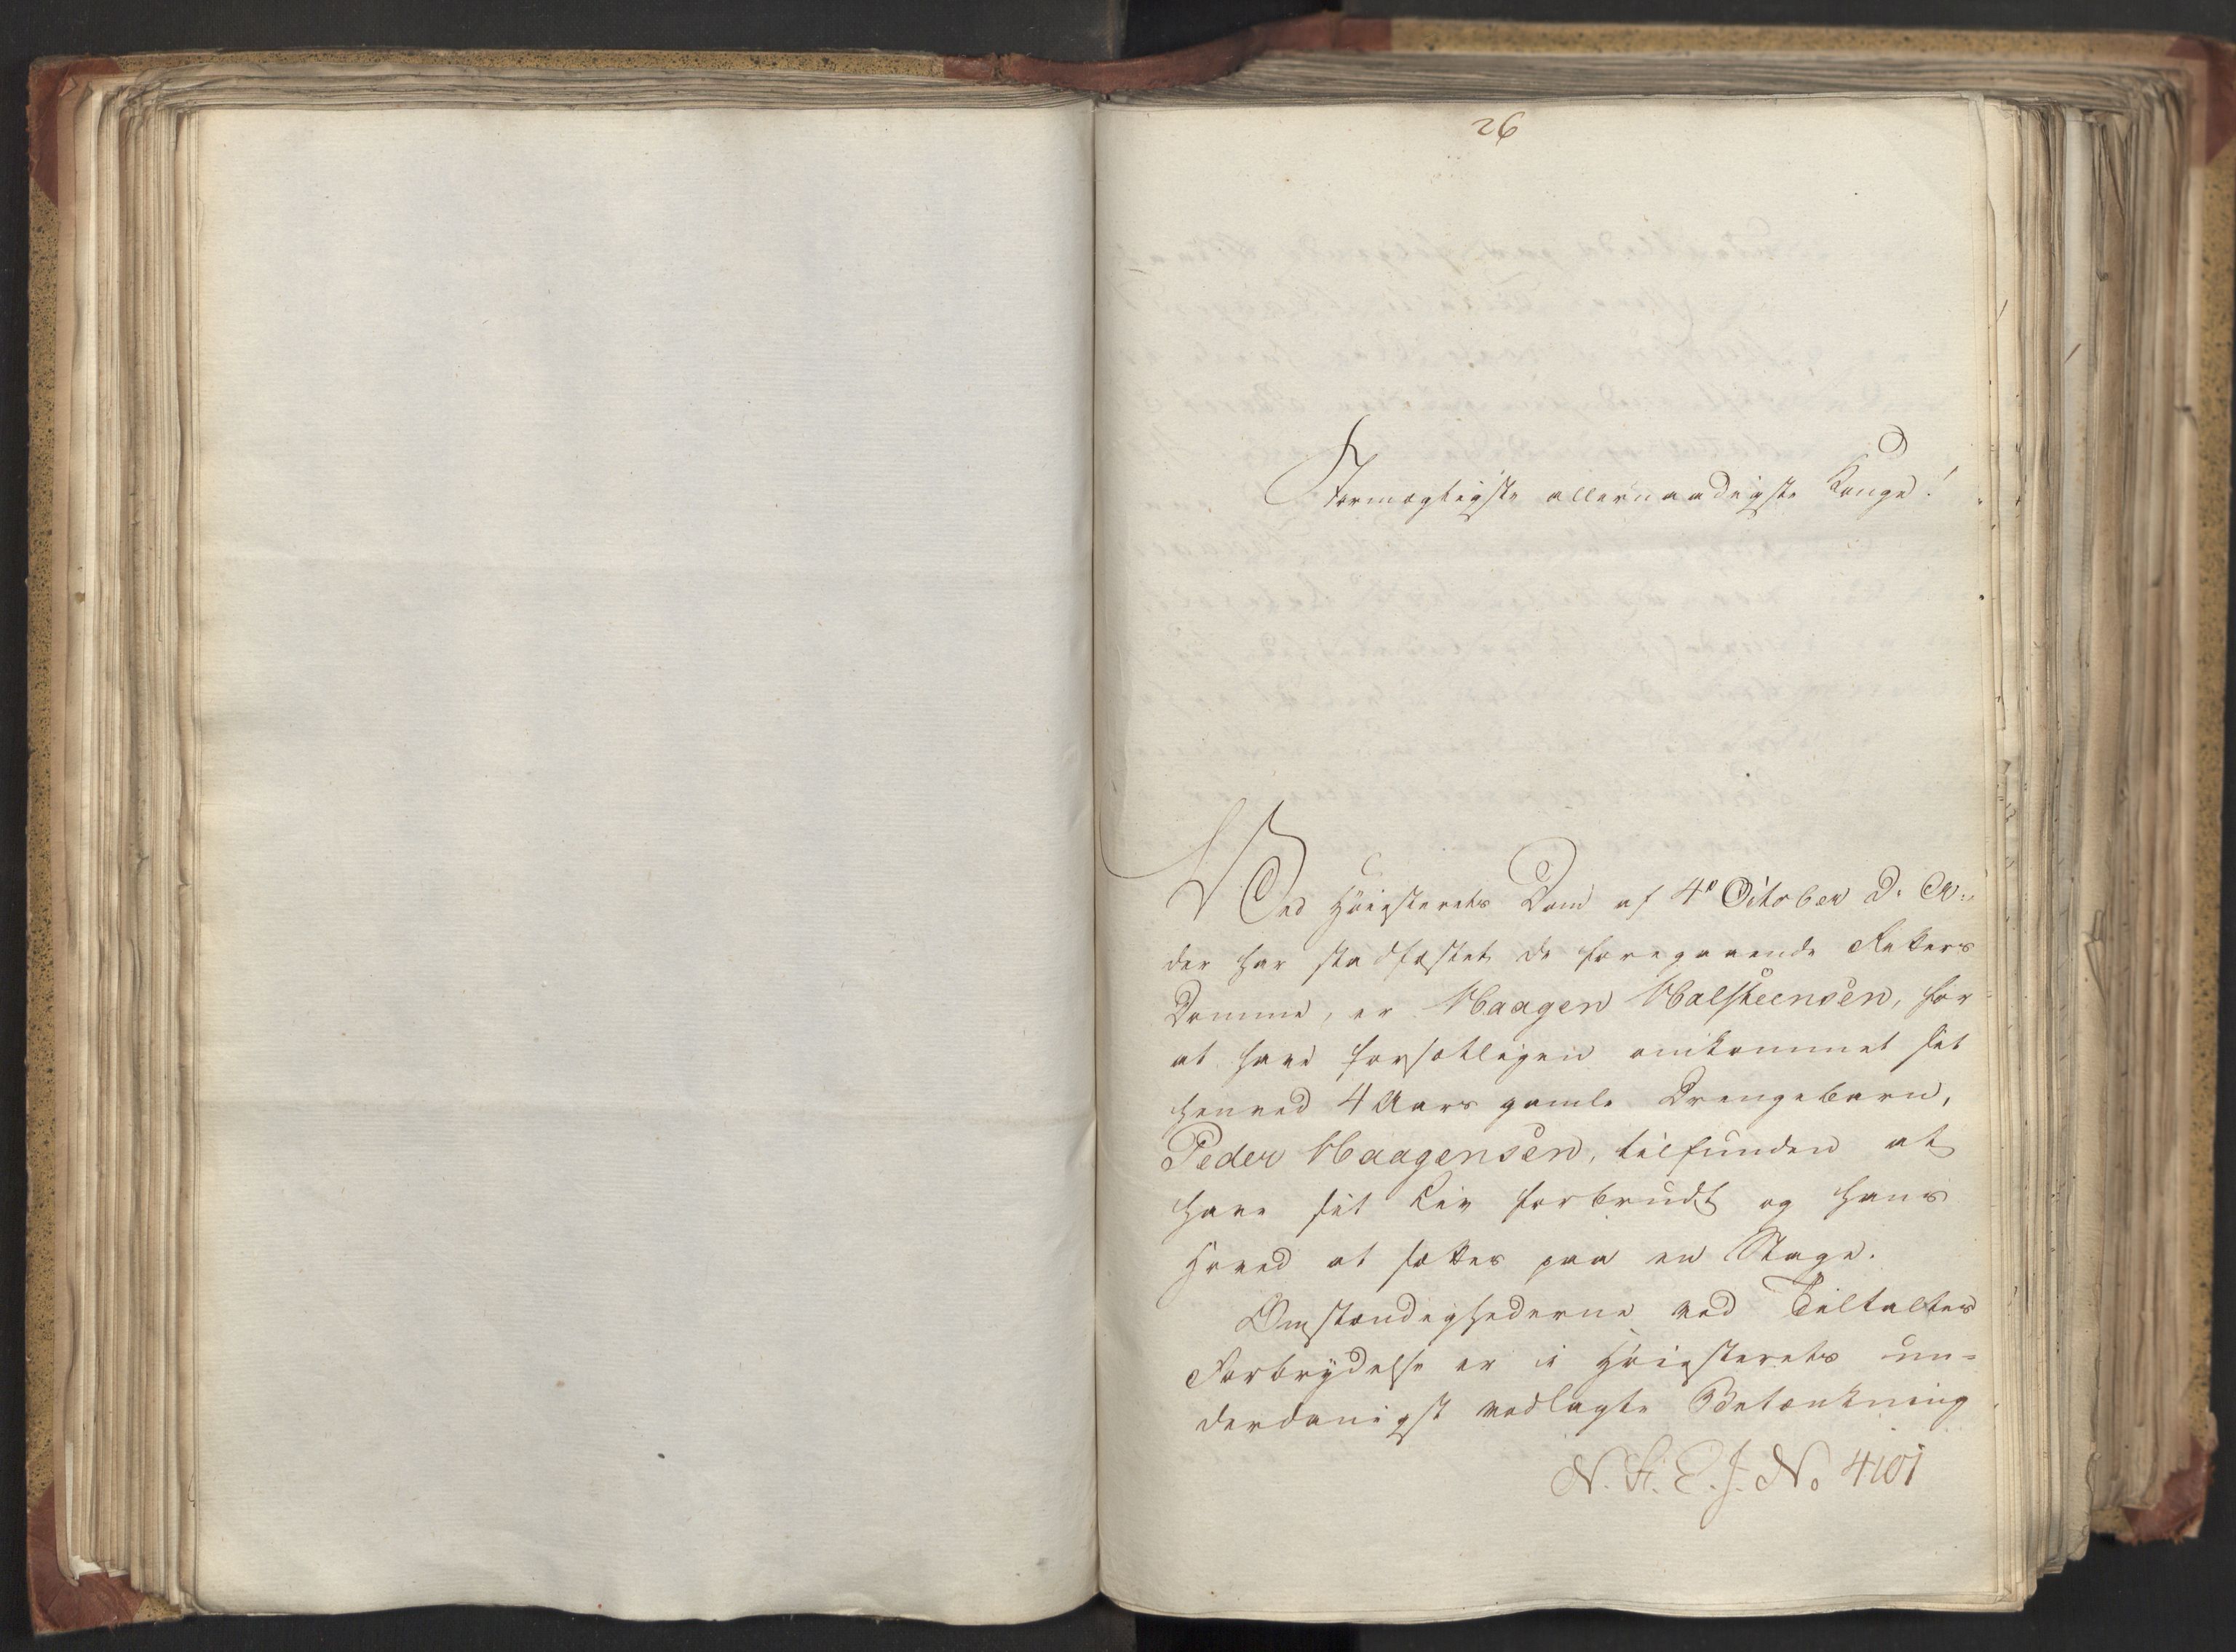 26
Stormægtigste allernaadigste Konge!
Ved Høiesterets Dom af 4de October d. A.,
der har stadfæstet de foregaaende Retters
Domme, er Haagen Halsteensen, for
at have forsætligen omkommet sit
henved 4 Aars gamle Drengebarn,
Peder Haagensen, tilfunden at
have sit Liv forbrudt og hans
Hoved at sættes paa en Stage.
Omstændighederne ved Tiltaltes
Forbrydelse er i Høiesterets un-
derdanigst vedlagte Betænkning
N. St. E. J. No 4101